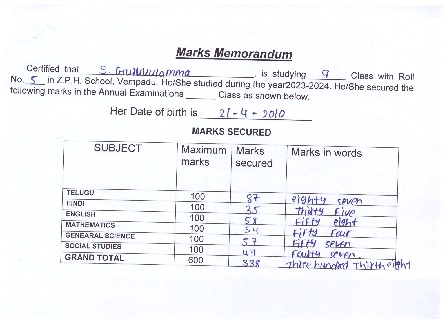 Marks Memorandum
Certified that S. Guruvulamma, is studying 9 Class with Roll
No. 5 in Z.P.H. School, Vempadu. He/She studied during the year2023-2024. He/She secured the
following marks in the Annual Examinations ______ Class as shown below.
Her Date of birth is 21-4-2010
MARKS SECURED
SUBJECT Maximum marks Marks secured Marks in words
TELUGU 100 87 eighty seven
HINDI 100 35 thirty Five
ENGLISH 100 58 Fifty eight
MATHEMATICS 100 54 Fifty Four
GENEARAL SCIENCE 100 57 Fifty seven
SOCIAL STUDIES 100 47 Fourty seven
GRAND TOTAL 600 338 Three hundred Thirth eight